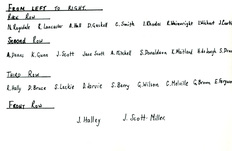 FROM LEFT TO RIGHT.
BACK ROW
N. Ragsdale R. Lancaster A. Hall D. Gaskell C. Smith I. Rhodes R. Wainwright E. Whibert J. Curtis
SECOND ROW
A. Davis K. Gunn J. Scott Jane Scott A. Mitchell S. Donaldson R. Maitland S. Dr
THIRD ROW
R. Hally D. Bruce S. Leckie D. Kervie S. Berry G. Wilson C. Melville G. Brown E. Ferguson
FRONT ROW
J. Halley J. Scott-Miller